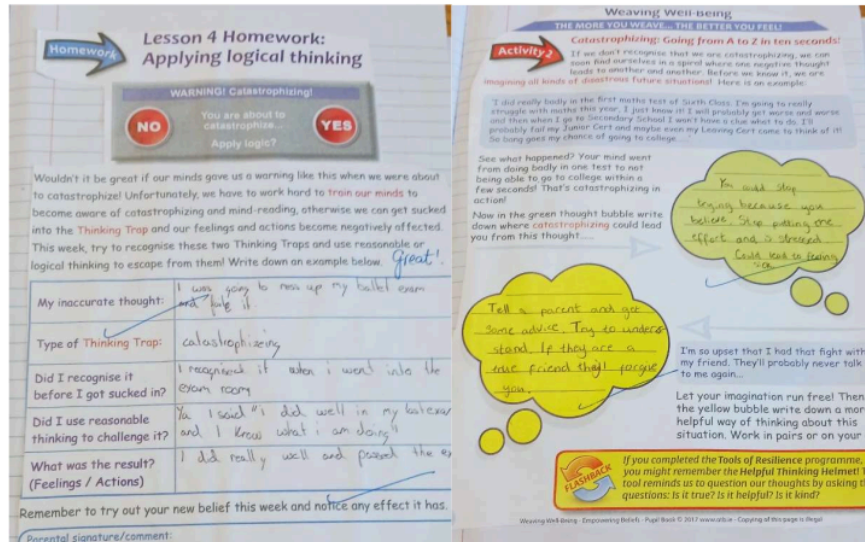 Homework
Lesson 4 Homework:
Applying logical thinking
WARNING! Catastrophizing!
NO
You are about to
catastrophize...
Apply logic?
YES
Wouldn't it be great if our minds gave us a warning like this when we were about
to catastrophize! Unfortunately, we have to work hard to train our minds to
become aware of catastrophizing and mind-reading, otherwise we can get sucked
into the Thinking Trap and our feelings and actions become negatively affected.
This week, try to recognise these two Thinking Traps and use reasonable or
logical thinking to escape from them! Write down an example below.
Great!
My inaccurate thought:
I was going to mess up my ballet exam
and fale it
Type of Thinking Trap:
catastrophizeing
Did I recognise it
before I got sucked in?
I recognised it when i went into the
exam room
Did I use reasonable
thinking to challenge it?
Ya I said "i did well in my last exam
and I know what i am doing"
What was the result?
(Feelings / Actions)
I did really well and passed the ex
Remember to try out your new belief this week and notice any effect it has.
Parental signature/comment:
Weaving Well-Being
THE MORE YOU WEAVE... THE BETTER YOU FEEL!
Activity 2
Catastrophizing: Going from A to Z in ten seconds!
If we don't recognise that we are catastrophizing, we can
soon find ourselves in a spiral where one negative thought
leads to another and another. Before we know it, we are
imagining all kinds of disastrous future situations! Here is an example:
'I did really badly in the first maths test of Sixth Class. I'm going to really
struggle with maths this year, I just know it! I will probably get worse and worse
and then when I go to Secondary School I won't have a clue what to do. I'll
probably fail my Junior Cert and maybe even my Leaving Cert come to think of it!
So bang goes my chance of going to college...'
See what happened? Your mind went
from doing badly in one test to not
being able to go to college within a
few seconds! That's catastrophizing in
action!
Now in the green thought bubble write
down where catastrophizing could lead
you from this thought.....
You could stop
trying because you
believe. Stop putting the
effort and is stressed
Could lead to feeling
Tell a parent and get
some advice. Try to unders
stand. If they are a
true friend they'll forgive
you.
I'm so upset that I had that fight with
my friend. They'll probably never talk
to me again...
Let your imagination run free! Then
the yellow bubble write down a mor
helpful way of thinking about this
situation. Work in pairs or on your
FLASHBACK
If you completed the Tools of Resilience programme,
you might remember the Helpful Thinking Helmet!
tool reminds us to question our thoughts by asking t
questions: Is it true? Is it helpful? Is it kind?
Weaving Well-Being - Empowering Beliefs - Pupil Book © 2017 - Copying of this page is illegal